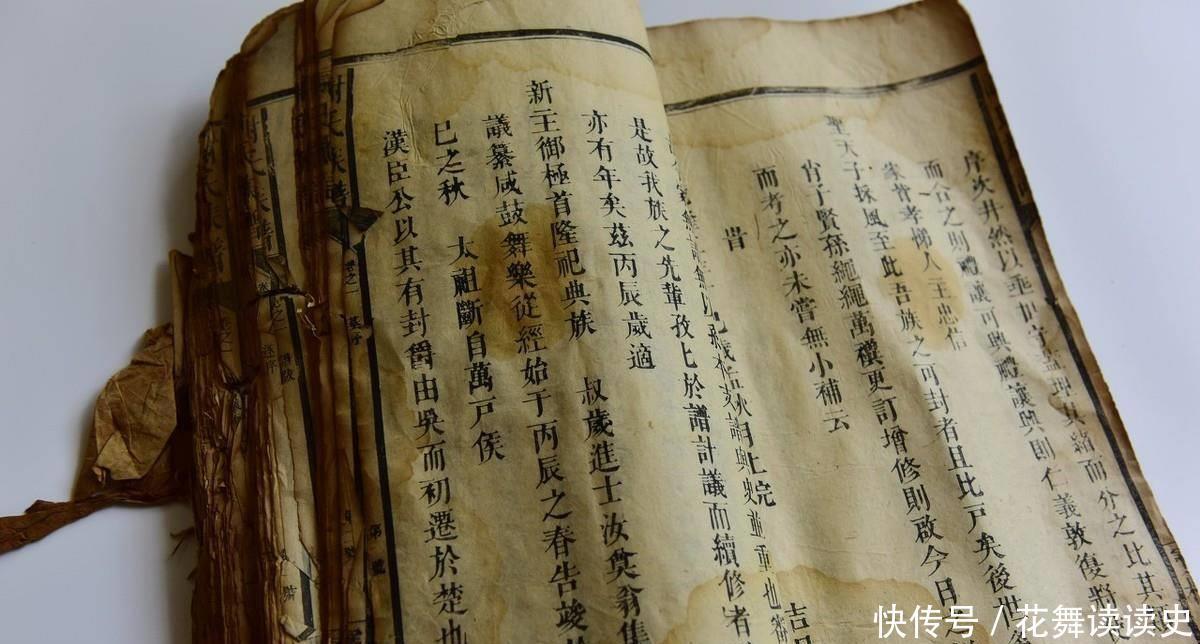 序次井然以垂世守蓋理其緒而分之比其
而合之則禮讓可興禮讓興則仁義敦復將
家皆孝悌人人主忠信
聖天子採風至此吾族之可封者且比戶矣後世
肖子賢孫繩繩萬禩更訂增修則啟今日之
而考之亦未嘗無小補云
昔
是故我族之先輩孜孜於譜計議而續修者
亦有年矣茲丙辰歲適
新王御極首隆祀典族 叔歲進士汝奠翁集
議纂咸鼓舞樂從經始于丙辰之春告竣
巳之秋 太祖斷自萬戶侯
漢臣公以其有封爵由吳而初遷於楚也
氏族譜
快传号/花舞读读史